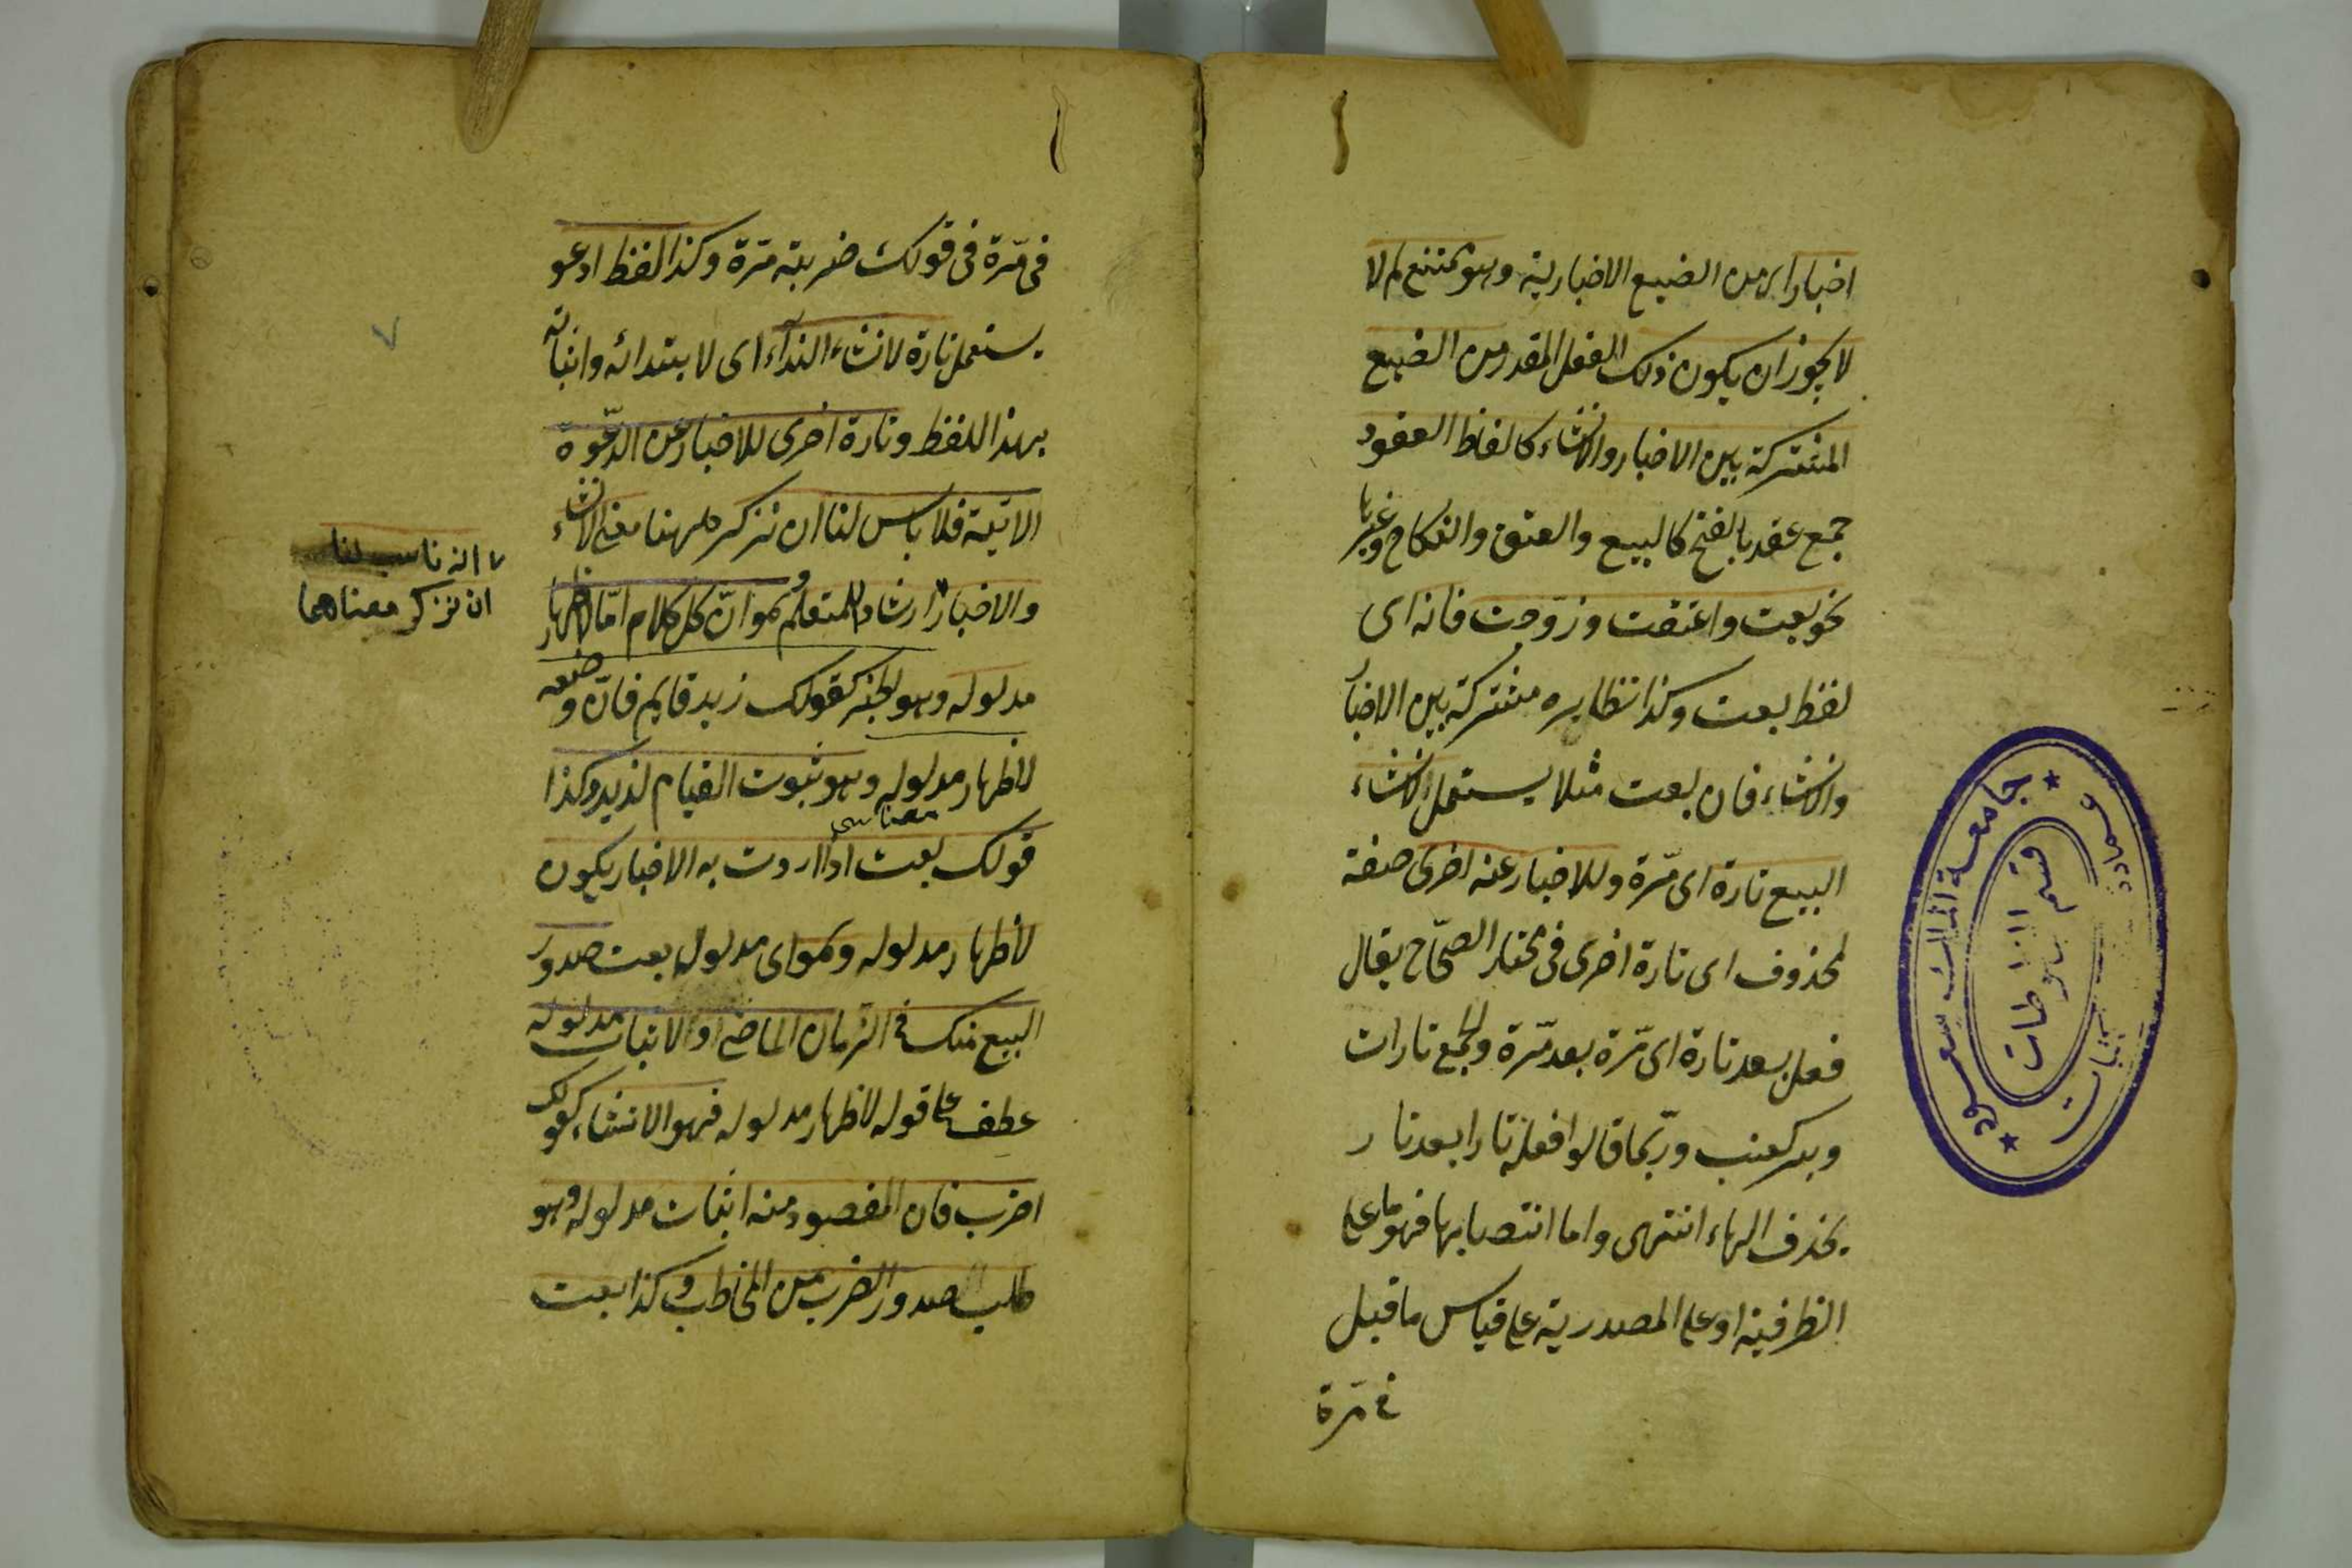 اخبارا اى من الصيغ الاخبارية وهو ممتنع لم لا
لا يجوز ان يكون ذلك الفعل المقدر من الصيغ
المشتركة بين الاخبار والانشاء كالفاظ العقود
جمع عقد بالفتح كالبيع والعتق والنكاح وغيرها
نحو بعت واعتقت وزوجت فانه اى
لفظ بعت وكذا نظايره مشتركة بين الاخبار
والانشاء فان بعت مثلا يستعمل لانشاء
البيع تارة اى مّرة وللاخبار عنه اخرى صفة
لمحذوف اى تارة اخرى فى مختار الصحّاح يقال
فعل بعد تارة اى مّرة بعد مّرة والجمع تارات
وير كعنب وربّما قالوا فعله تارا بعد تار
بحذف الهاء انتهى واما انتصابها فهو اما على
الظرفية او على المصدرية على قياس ما قيل
فى مرّة
فى مّرة فى قولك ضربته مّرة وكذا لفظ ادعو
يستعمل تارة لانشاء النداء اى لابتدائه واثباته
بهذا اللفظ وتارة اخرى للاخبار عن الدّعوة
الاتية فلا باس لنا ان نذكر ههنا معنى الانشاء
والاخبار ارشادا للمتعلم وهو انّ كل كلام امّا لاظهار
مدلوله وهو الخبر كقولك زيد قايم فانّه وضعه
لاظهار مدلوله وهو ثبوت القيام لزيد وكذا
قولك بعت اذا اردت به الاخبار يكون
معناسى
لاظهار مدلوله وهو اى مدلول بعت صدور
البيع منك فى الزمان الماضى او لاثبات مدلوله
عطف على قوله لاظهار مدلوله فهو الانشاء كقولك
اضرب فان المقصود منه اثبات مدلوله وهو
طلب صدور الضرب من المخاطب وكذا بعت
انه ناسب لنا
ان نذكر معناهما
٧
جامعة الملك سعود
قسم المخطوطات
عمادة
مكتبات